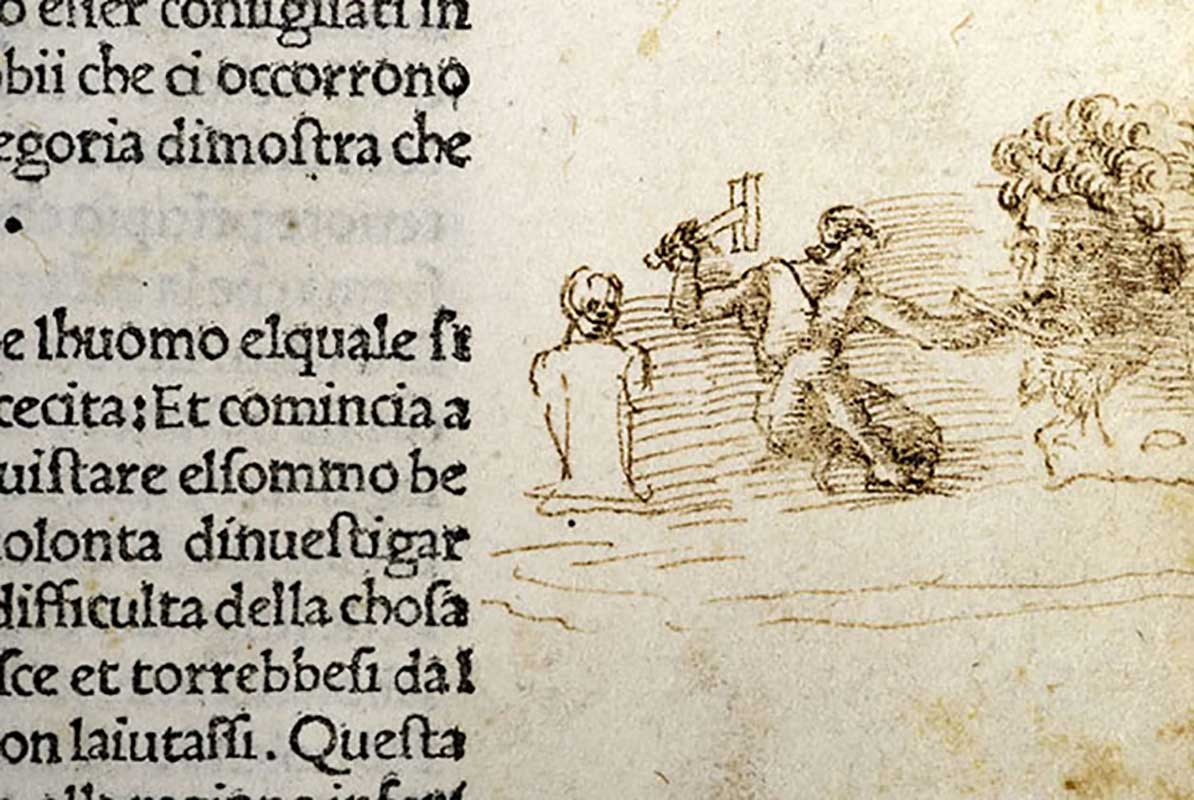 o eſſer conſigliati in
bii che ci occorrono
egoria dimoſtra che
e lhuomo elquale ſi
cecita: Et comincia a
uiſtare elſommo be
olonta dinueſtigar
difficulta della choſa
ſce et torrebbeſi dal
on laiutaſſi. Queſta